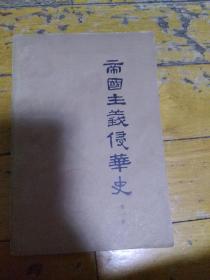 帝國主義侵華史